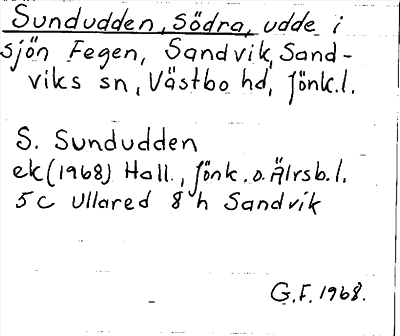 Sundudden, Södra, udde i
sjön Fegen, Sandvik, Sand-
viks sn, Västbo hd, Jönk.l.
S. Sundudden
ek (1968) Hall., Jönk. o. Älvsb.l.
5 C Ullared 8 h Sandvik
G.F. 1968.